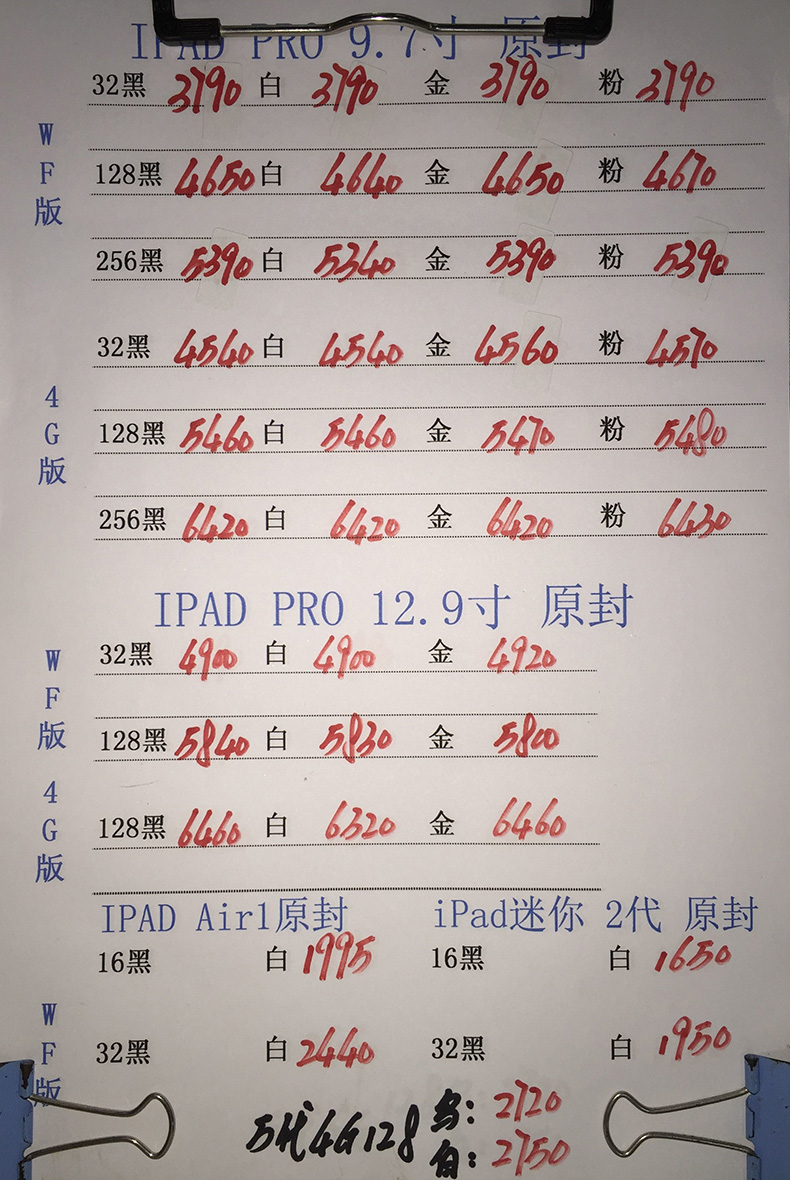 IPAD PRO 9.7寸 原封
32黑 3790 白 3790 金 3790 粉 3790
WF版
128黑 4650 白 4640 金 4650 粉 4670
256黑 5390 白 5340 金 5390 粉 5390
32黑 4540 白 4540 金 4560 粉 4570
4G版
128黑 5460 白 5460 金 5470 粉 5480
256黑 6420 白 6420 金 6420 粉 6430
IPAD PRO 12.9寸 原封
WF版
32黑 4900 白 4900 金 4920
128黑 5840 白 5830 金 5800
4G版
128黑 6460 白 6320 金 6460
IPAD Air1原封 iPad迷你 2代 原封
16黑 白 1995 16黑 白 1650
WF版
32黑 白 2440 32黑 白 1950
5代4G128 : 2720
白: 2750